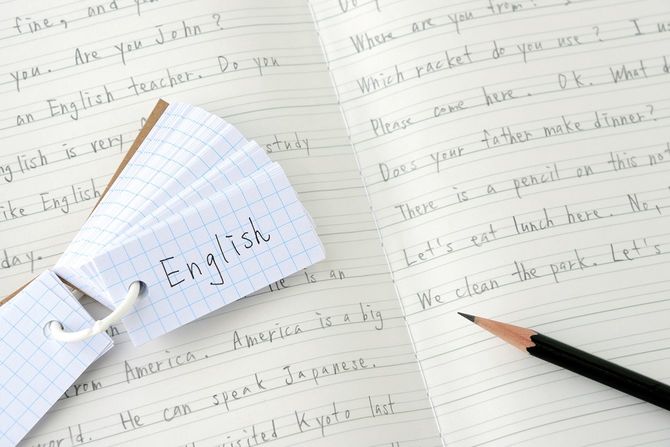 fine, and you
you. Are you John?
an English teacher. Do you
English is very
study
like English
day.
is an
from America. America is a big
world. He can speak Japanese.
visited Kyoto last
English
Where are you from?
Which racket do you use? I
Please come here. Ok. What
Does your father make dinner?
There is a pencil on this
Let's eat lunch here. No,
We clean the park. Let's